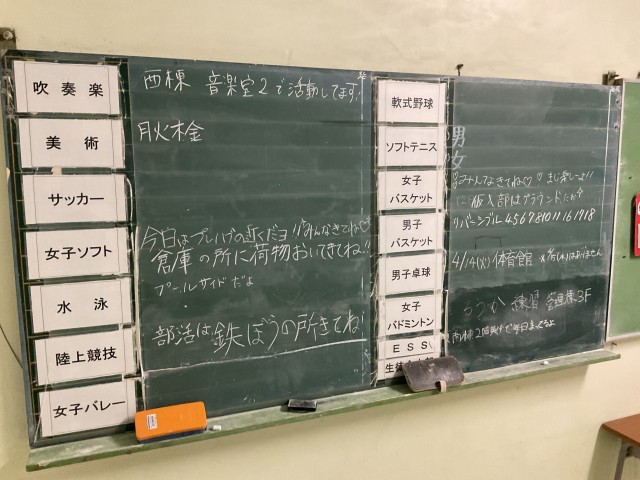 吹奏楽
西棟 音楽室2で活動してます!
美術
月火木金
サッカー
女子ソフト
今日はプレハブの近くだヨ!!みんなきてね♡
倉庫の所に荷物おいてきてね!!
水泳
プールサイドだよ
陸上競技
部活は鉄ぼうの所きてね!
女子バレー
軟式野球
ソフトテニス
男
女
女子
バスケット
みんなきてね♡♡まじ楽しーよ!!
男子
バスケット
4 5 6 7 8 10 11 16 17 18
男子卓球
4/14(火) 体育館
女子
バドミントン
ろうか練習 管理棟3F
ESS